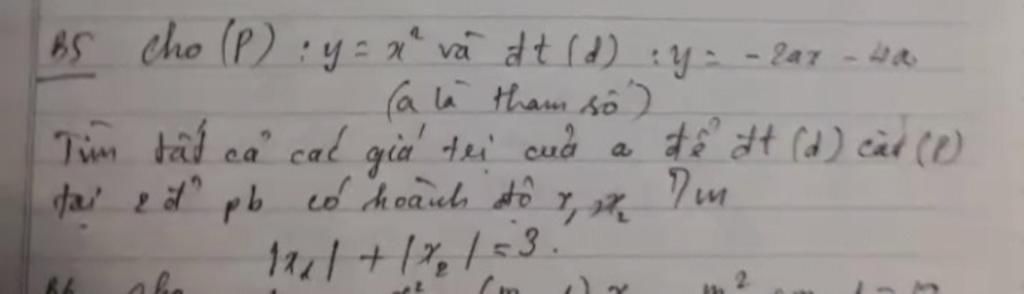 B5 Cho (P) : y = x² và đt (d) : y = -2ax - 4a
(a là tham số)
Tìm tất cả các giá trị của a để đt (d) cắt (P)
tại 2 đ² pb có hoành độ x₁, x₂ T/m
|x₁| + |x₂| = 3.